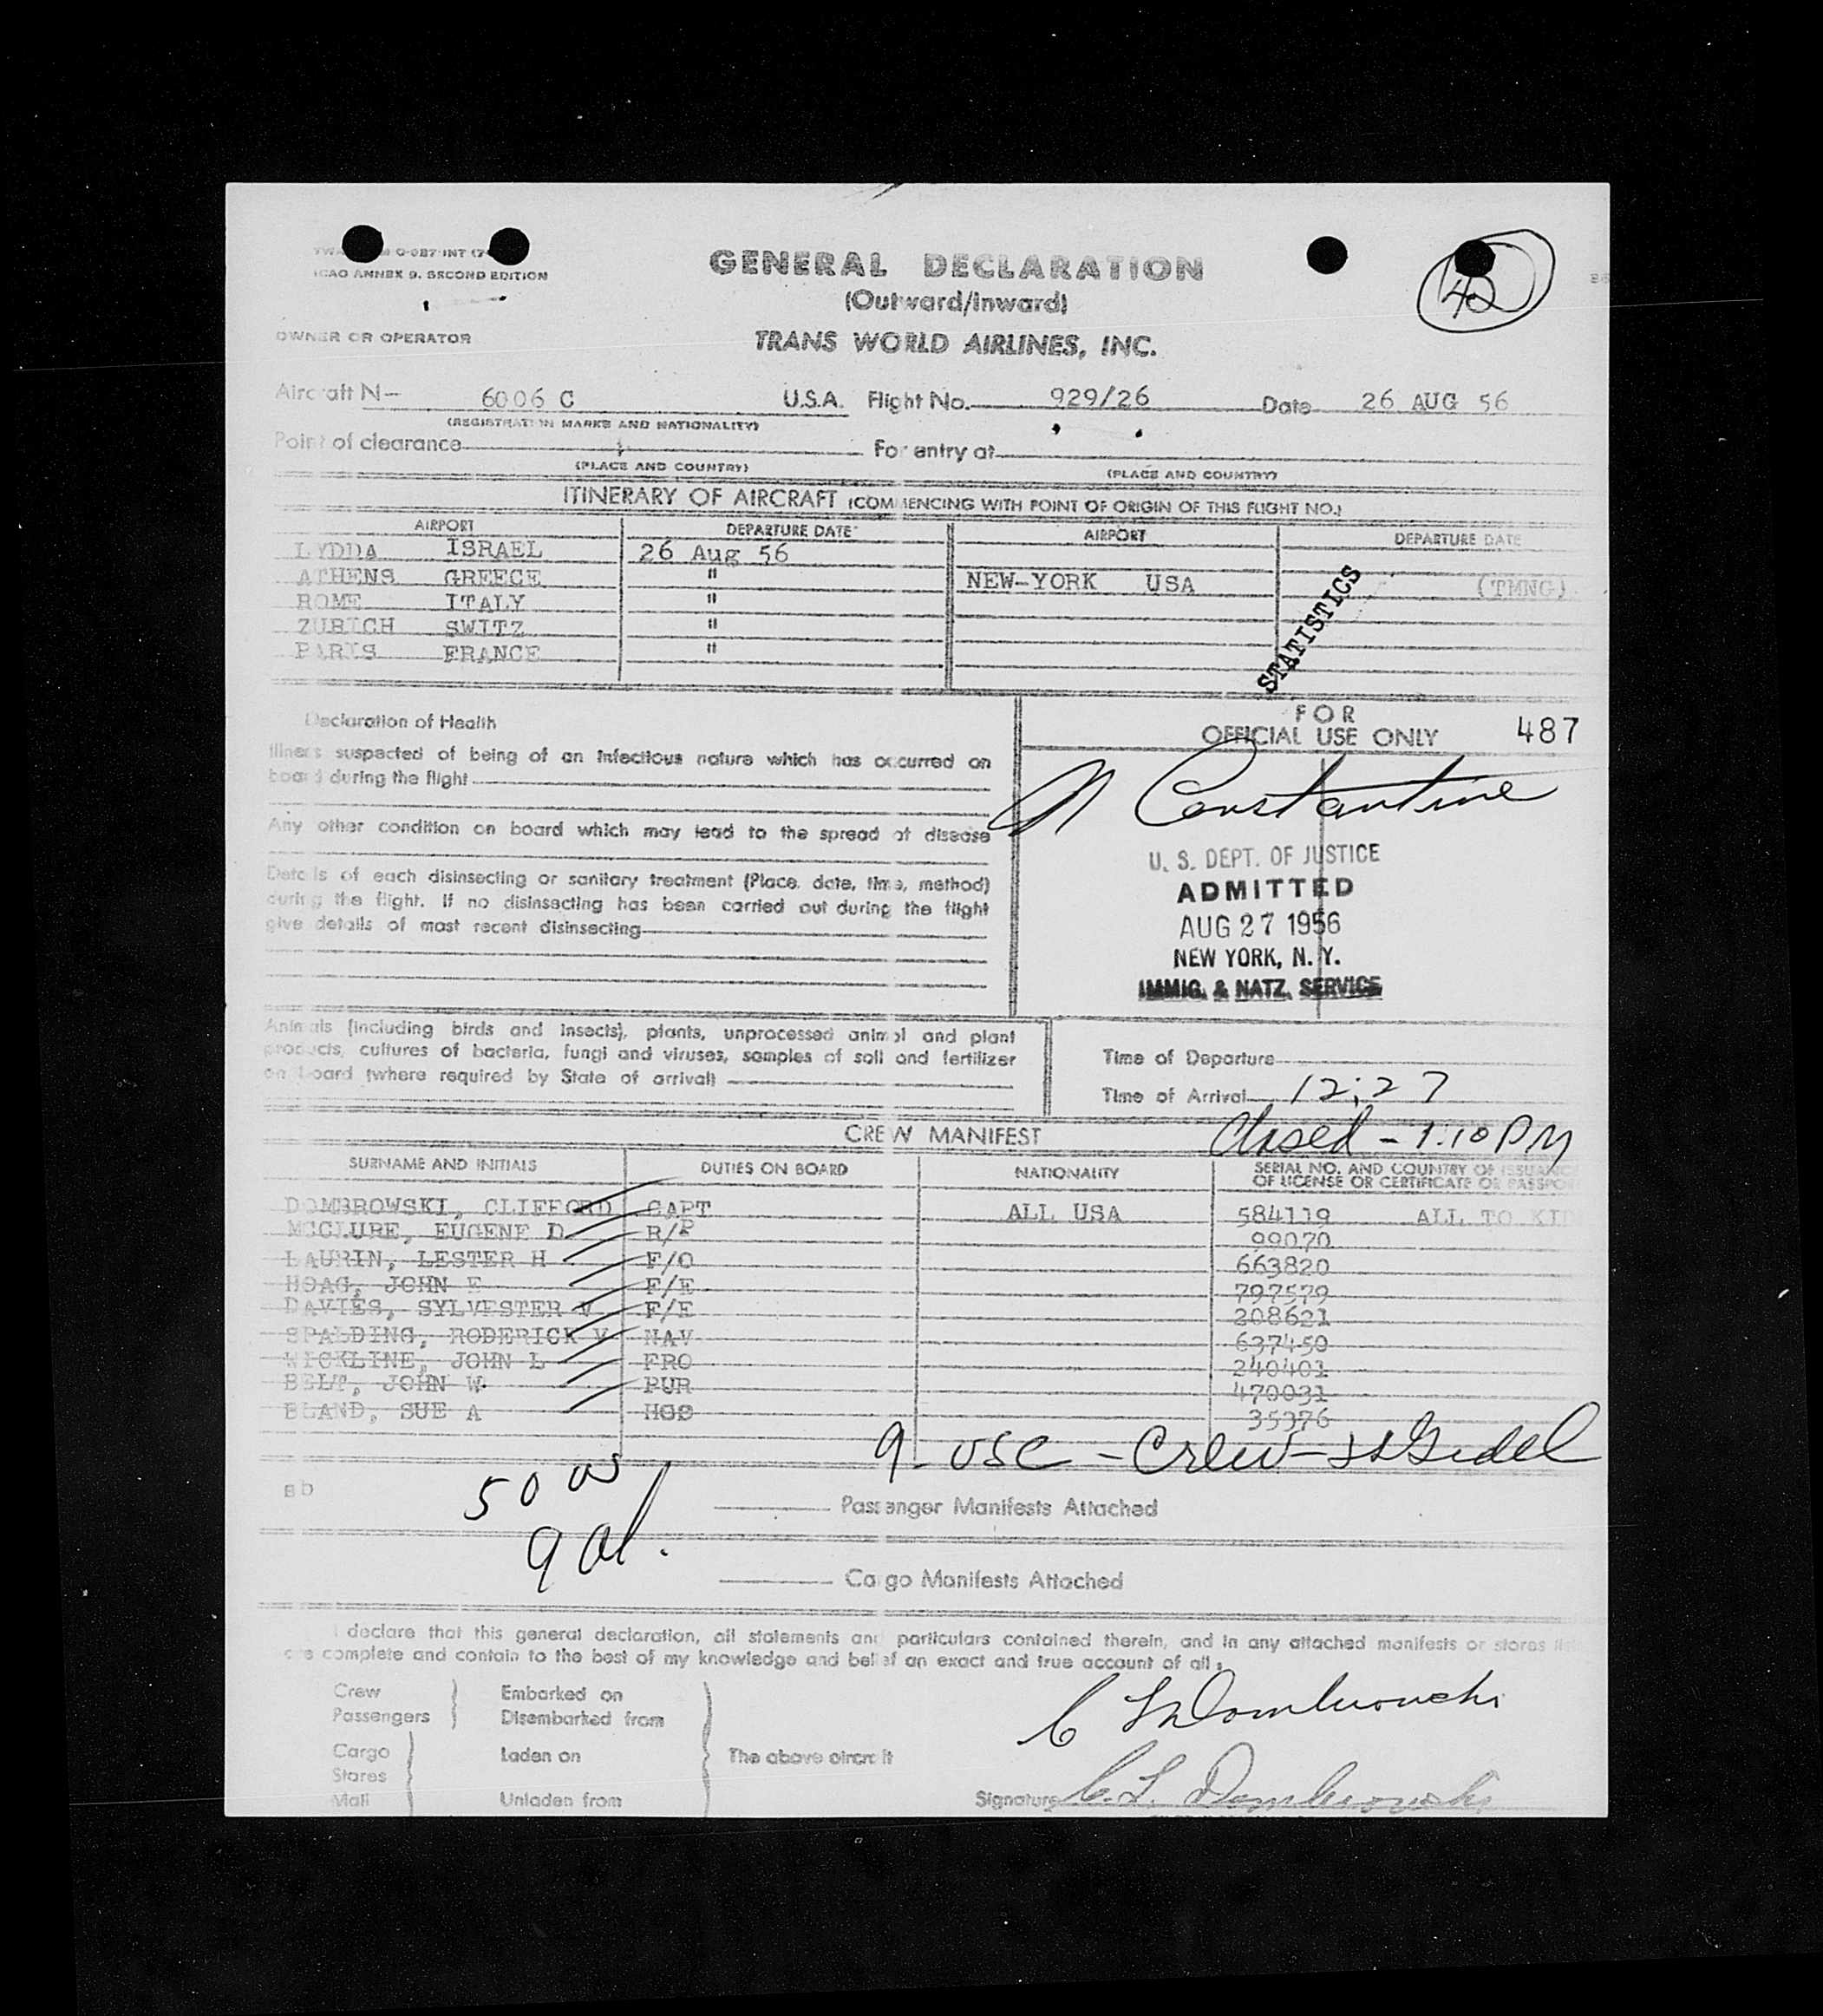 ICAO ANNEX 9. SECOND EDITION
GENERAL DECLARATION
(Outward/Inward)
42
OWNER OR OPERATOR
TRANS WORLD AIRLINES, INC.
Aircraft N- 6006 C U.S.A. Flight No. 929/26 Date 26 AUG 56
(REGISTRATION MARKS AND NATIONALITY)
Point of clearance For entry at
(PLACE AND COUNTRY) (PLACE AND COUNTRY)
ITINERARY OF AIRCRAFT (COMMENCING WITH POINT OF ORIGIN OF THIS FLIGHT NO.)
AIRPORT DEPARTURE DATE AIRPORT DEPARTURE DATE
LYDDA ISRAEL 26 Aug 56
ATHENS GREECE " NEW-YORK USA (TMNG)
ROME ITALY "
ZURICH SWITZ "
PARIS FRANCE "
STATISTICS
Declaration of Health
Illness suspected of being of an infectious nature which has occurred on
board during the flight
Any other condition on board which may lead to the spread of disease
Details of each disinsecting or sanitary treatment (Place, date, time, method)
during the flight. If no disinsecting has been carried out during the flight
give details of most recent disinsecting
FOR
OFFICIAL USE ONLY 487
N Constantine
U. S. DEPT. OF JUSTICE
ADMITTED
AUG 27 1956
NEW YORK, N. Y.
IMMIG. & NATZ. SERVICE
Animals (including birds and insects), plants, unprocessed animal and plant
products, cultures of bacteria, fungi and viruses, samples of soil and fertilizer
on board (where required by State of arrival)
Time of Departure
Time of Arrival 12:27
Closed - 1:10 PM
CREW MANIFEST
SURNAME AND INITIALS DUTIES ON BOARD NATIONALITY SERIAL NO. AND COUNTRY OF ISSUANCE
OF LICENSE OR CERTIFICATE OR PASSPO
DOMBROWSKI, CLIFFORD CAPT ALL USA 584119 ALL TO
MCCLURE, EUGENE D R/P 99070
LAURIN, LESTER H F/O 663820
HOAG, JOHN E F/E 797579
DAVIES, SYLVESTER V F/E 208621
SPALDING, RODERICK V NAV 637450
WICKLINE, JOHN L FRO 240401
BELT, JOHN W PUR 470031
BLAND, SUE A HOS 35376
9 - USC - Crew -
50 US
9 al.
Passenger Manifests Attached
Cargo Manifests Attached
I declare that this general declaration, all statements and particulars contained therein, and in any attached manifests or stores
are complete and contain to the best of my knowledge and belief an exact and true account of all:
Crew Embarked on
Passengers Disembarked from
Cargo Laden on The above aircraft
Stores
Mail Unladen from
C L Dombrowski
Signature C. L. Dombrowski